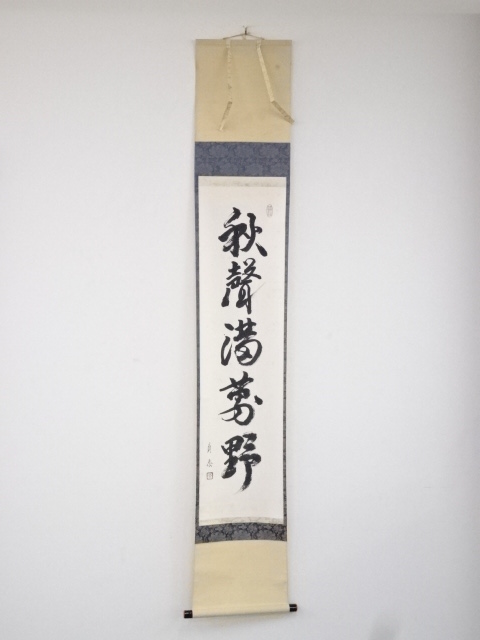 秋聲満萬野